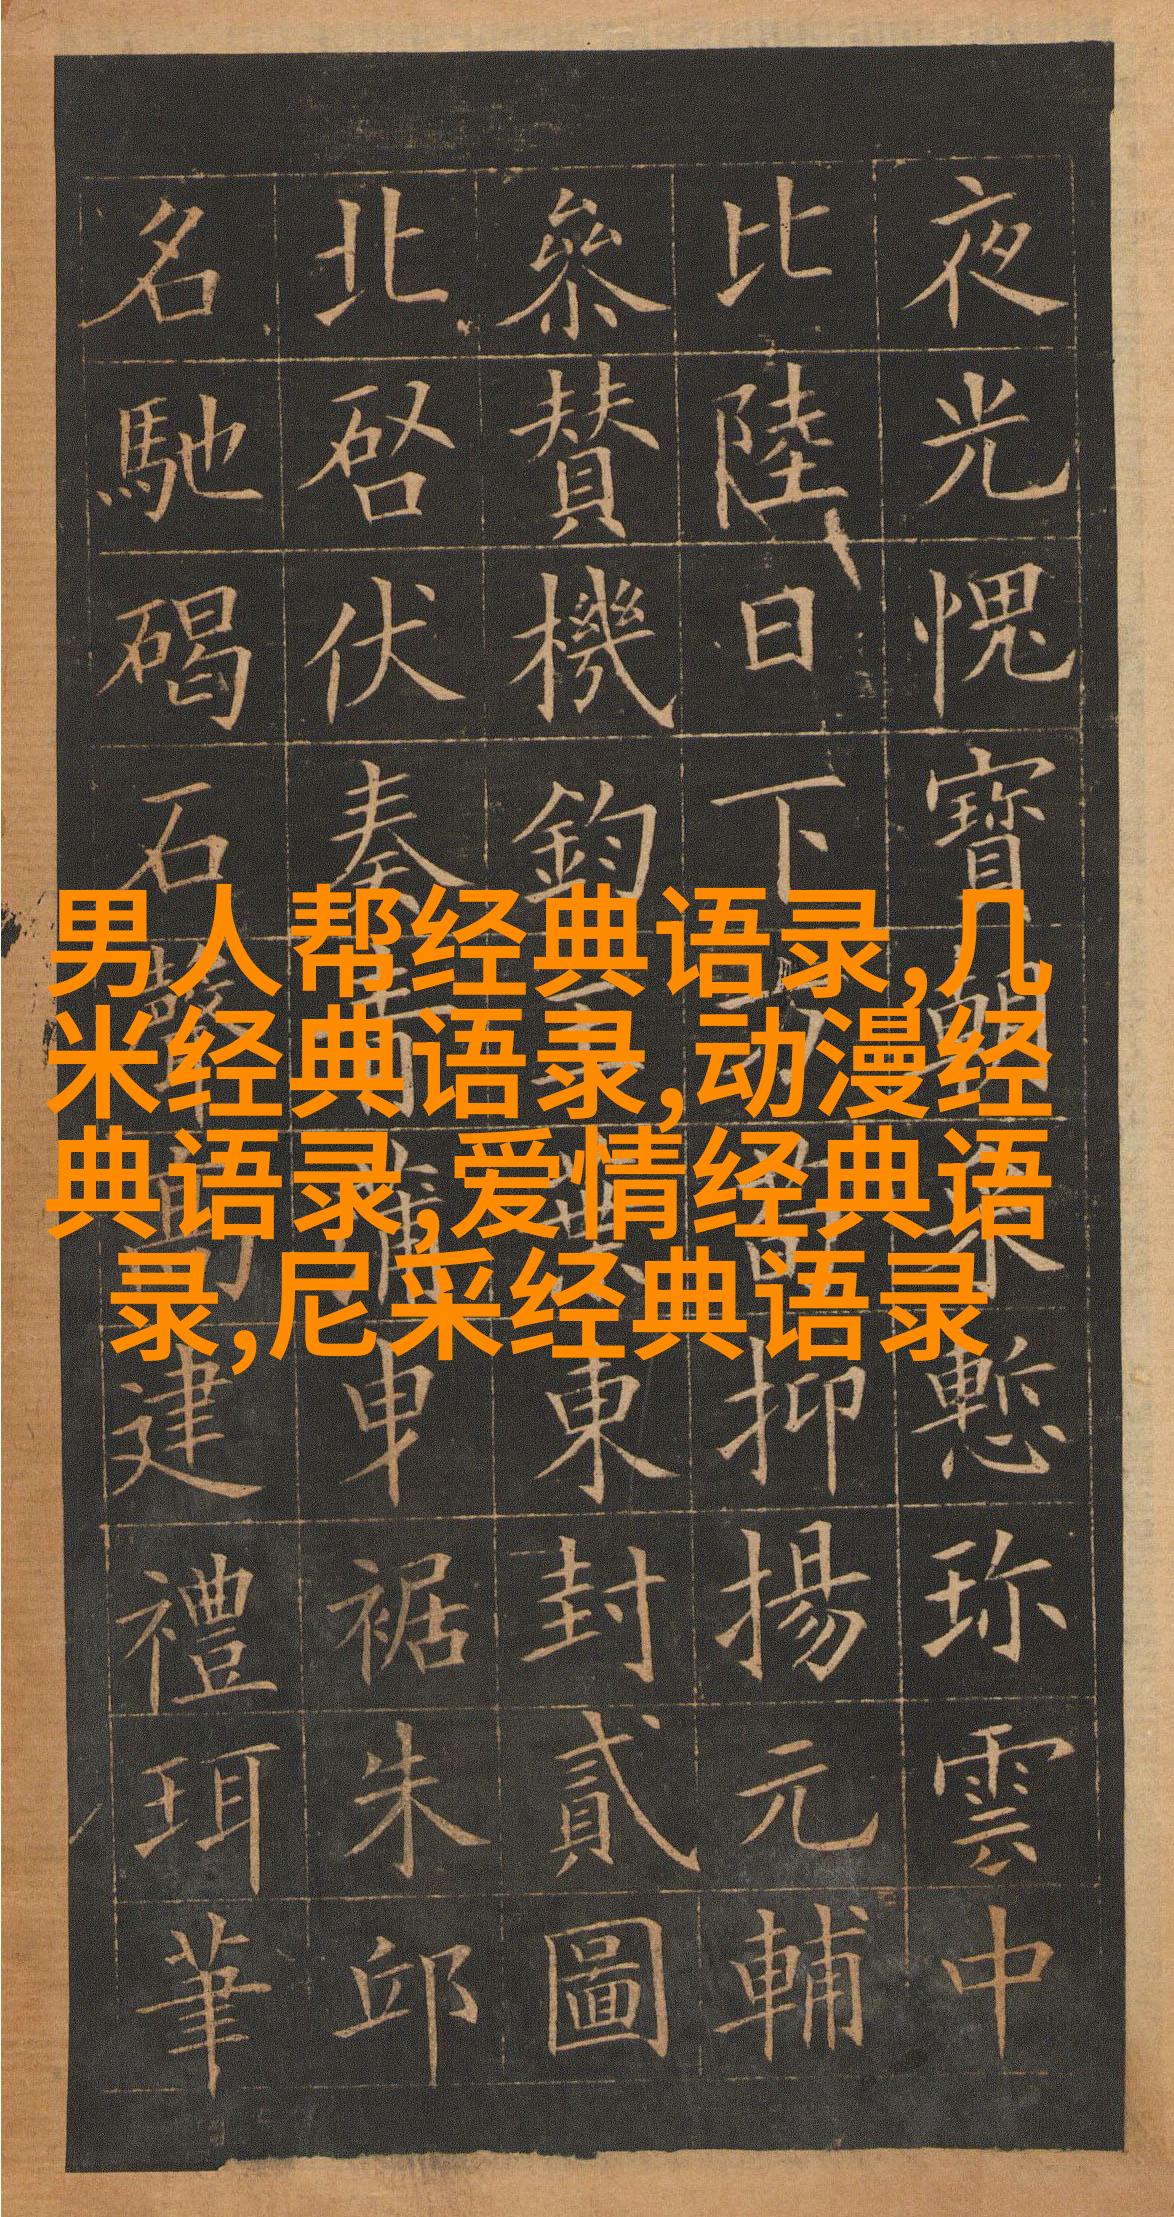 夜光愧寶慙珎雲中
比陸日下抑揚元輔
參賛機鈞東封貳圖
北啓伏奏裾朱邱
名馳碣石建禮珥筆
男人帮经典语录,几
米经典语录,动漫经
典语录,爱情经典语
录,尼采经典语录